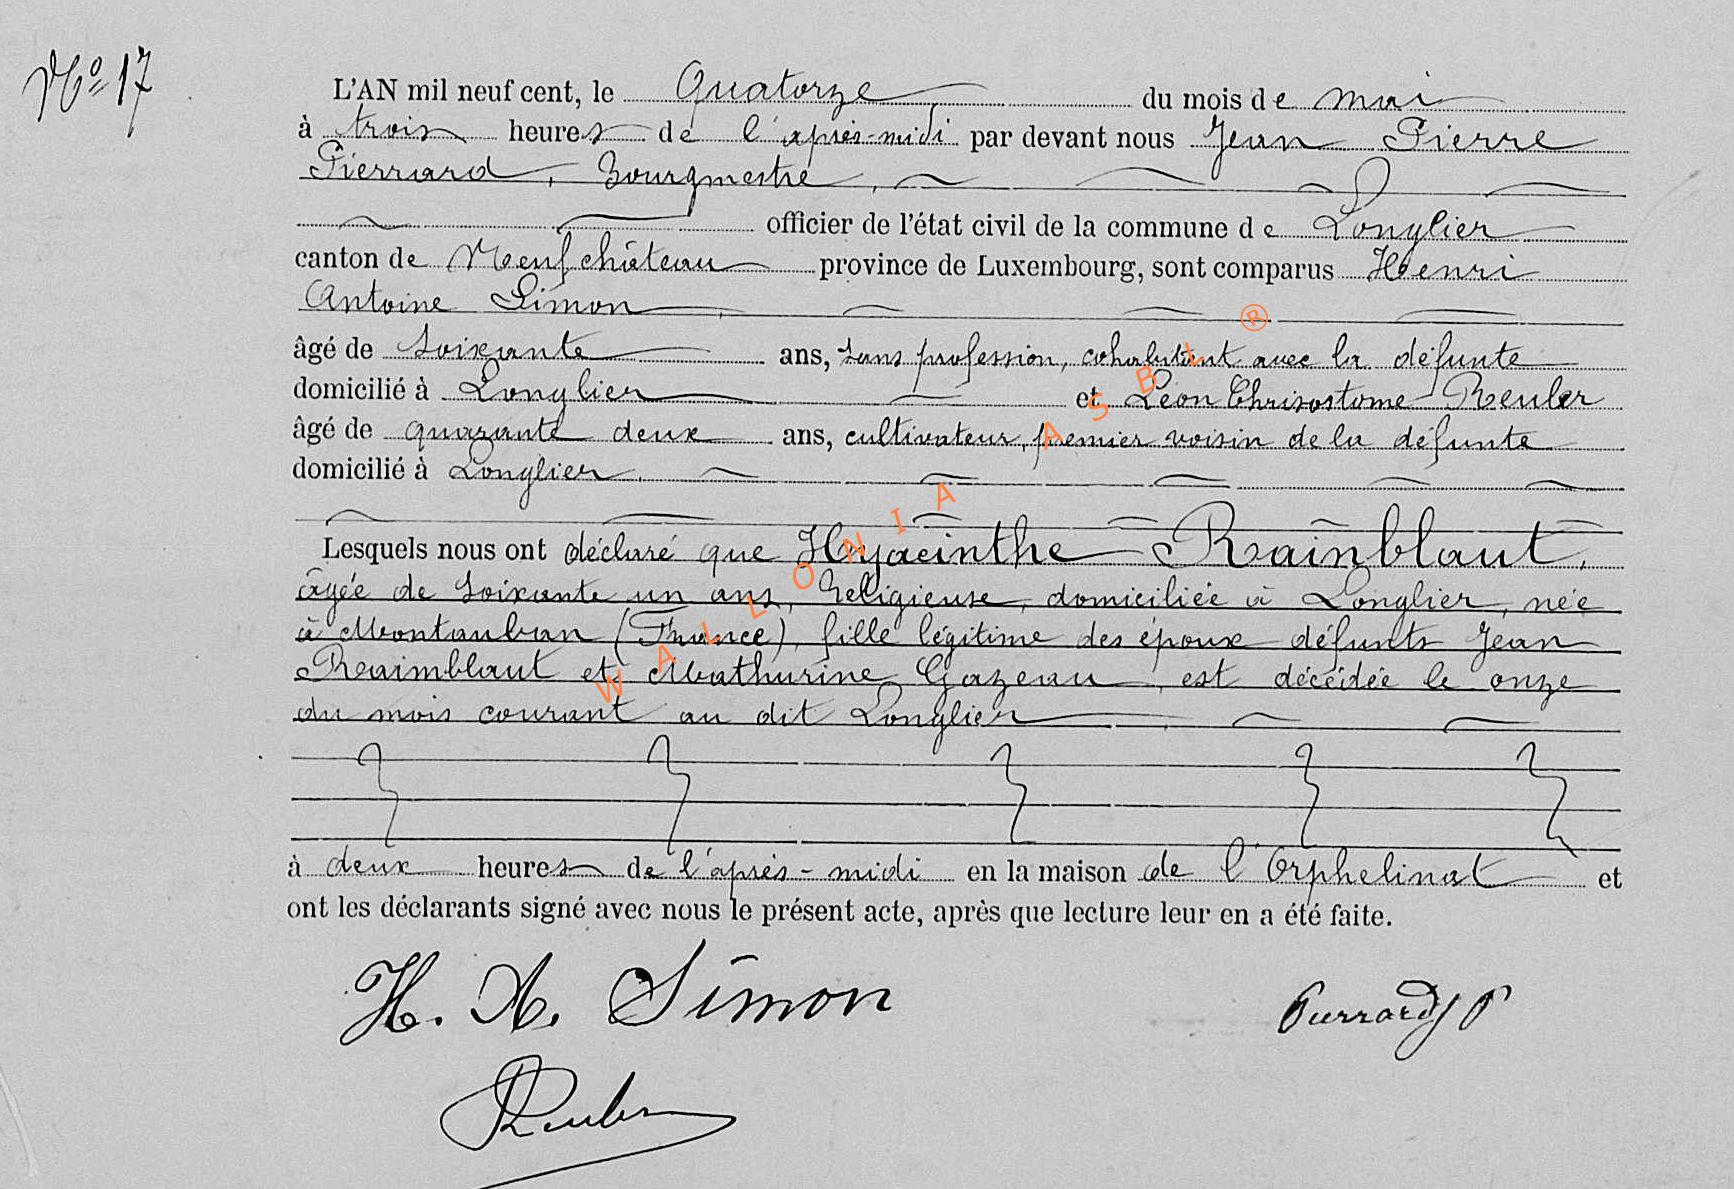 No 17
L'AN mil neuf cent, le Quatorze du mois de mai
à trois heures de l'après-midi par devant nous Jean Pierre
Pierrard, Bourgmestre,
officier de l'état civil de la commune de Longlier
canton de Neufchâteau province de Luxembourg, sont comparus Henri
Antoine Simon,
âgé de soixante ans, sans profession, cohabitant avec la défunte
domicilié à Longlier et Léon Chrisostome Reuler
âgé de quarante deux ans, cultivateur, premier voisin de la défunte
domicilié à Longlier.
Lesquels nous ont déclaré que Hyacinthe Rainblaut,
âgée de soixante un ans, Religieuse, domiciliée à Longlier, née
à Montauban (France), fille légitime des époux défunts Jean
Raimblaut et Mathurine Gazeau, est décédée le onze
du mois courant au dit Longlier
à deux heures de l'après-midi en la maison de l'Orphelinat et
ont les déclarants signé avec nous le présent acte, après que lecture leur en a été faite.
H. A. Simon
Pierrard J P
Reuler
WALLONIA ASBL ®